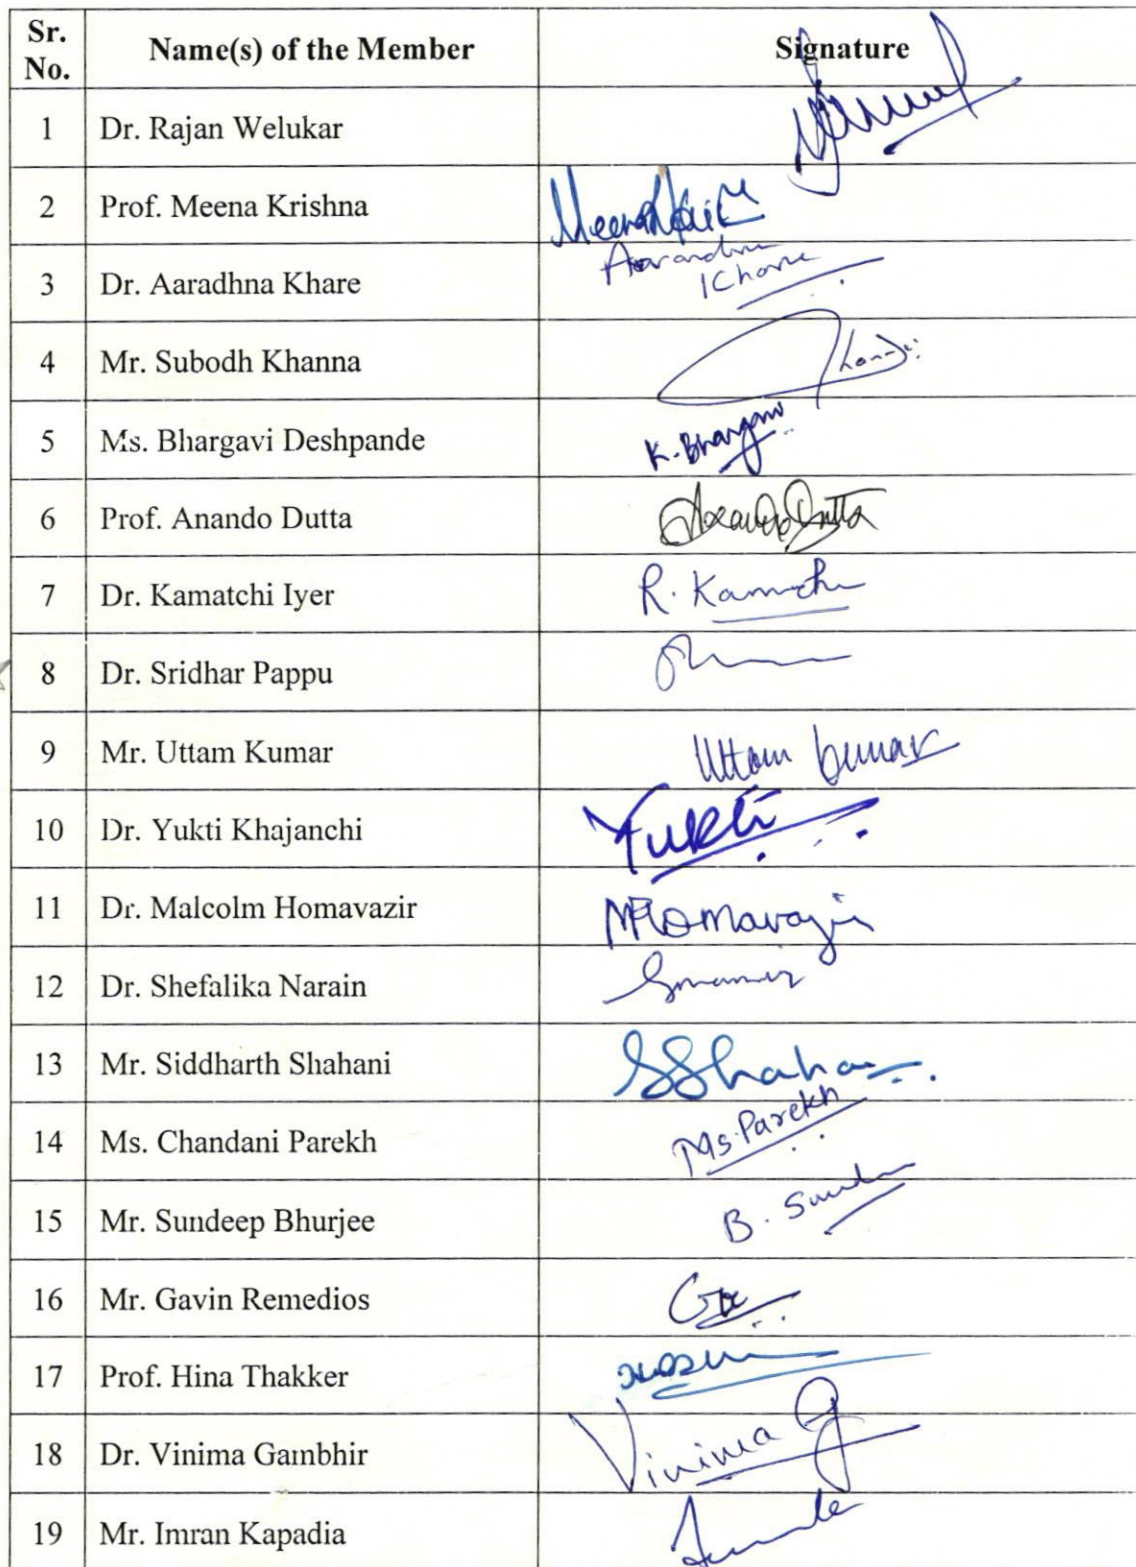 Sr. No.
Name(s) of the Member
Signature
1 Dr. Rajan Welukar
2 Prof. Meena Krishna
3 Dr. Aaradhna Khare
4 Mr. Subodh Khanna
5 Ms. Bhargavi Deshpande K. Bhargavi
6 Prof. Anando Dutta
7 Dr. Kamatchi Iyer R. Kamatchi
8 Dr. Sridhar Pappu
9 Mr. Uttam Kumar Uttam kumar
10 Dr. Yukti Khajanchi Yukti
11 Dr. Malcolm Homavazir MHomavazir
12 Dr. Shefalika Narain
13 Mr. Siddharth Shahani
14 Ms. Chandani Parekh Ms. Parekh
15 Mr. Sundeep Bhurjee
16 Mr. Gavin Remedios
17 Prof. Hina Thakker
18 Dr. Vinima Gambhir Vinima G
19 Mr. Imran Kapadia